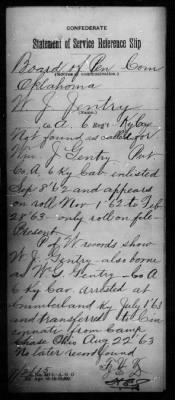 CONFEDERATE
Statement of Service Reference Slip
Board of Pen Com
(Source of communication.)
Oklahoma
W. J. Jentry
(Name.)
Co A. 6 Reg't Ky Cav
Not found, as called for
Wm. J Gentry Pvt
Co A, 6 Ky Cav enlisted
Sep 8'62 and appears
on roll Nov 1'62 to Feb
28'63 - only roll on file -
Present.
P of W records show
W. J. Jentry - also borne
as W. G. Pentry - Co A
6 Ky Cav. arrested at
Cumberland Ky July 1'63
and transferred to Cin-
cinnati from Camp
Chase Ohio Aug 22 '63
No later record found